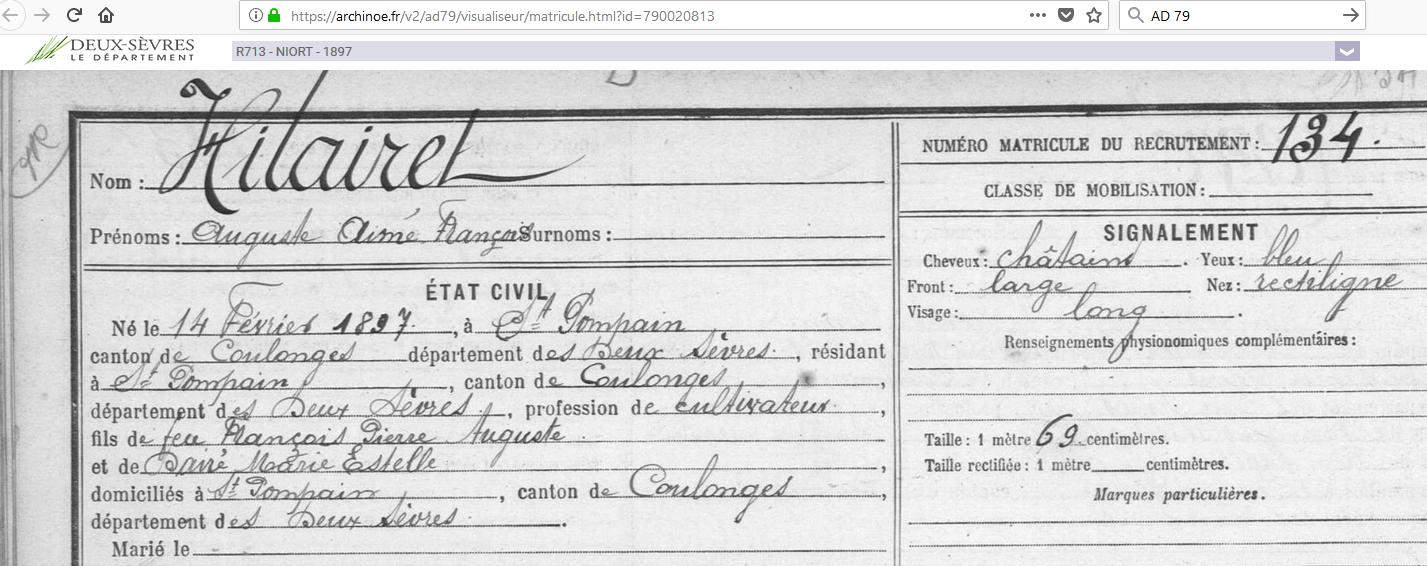 https://archinoe.fr/v2/ad79/visualiseur/matricule.html?id=790020813
AD 79
DEUX-SÈVRES
LE DÉPARTEMENT
R713 - NIORT - 1897
Nom : Hilairet
Prénoms : Auguste Aimé François Surnoms :
ÉTAT CIVIL
Né le 14 Février 1897, à St Pompain
canton de Coulonges département des Deux Sèvres, résidant
à St Pompain, canton de Coulonges,
département des Deux Sèvres, profession de cultivateur,
fils de feu François Pierre Auguste
et de Marie Estelle,
domiciliés à St Pompain, canton de Coulonges,
département des Deux Sèvres.
Marié le
NUMÉRO MATRICULE DU RECRUTEMENT : 134.
CLASSE DE MOBILISATION :
SIGNALEMENT
Cheveux : châtains. Yeux : bleu
Front : large Nez : rectiligne
Visage : long.
Renseignements physionomiques complémentaires :
Taille : 1 mètre 69 centimètres.
Taille rectifiée : 1 mètre centimètres.
Marques particulières.